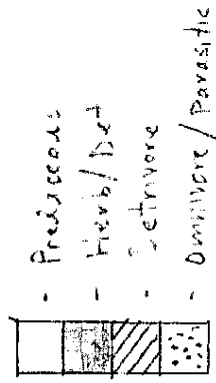 - Predaceous
- Herb/Det
- Detrivore
- Omnivore/Parasitic